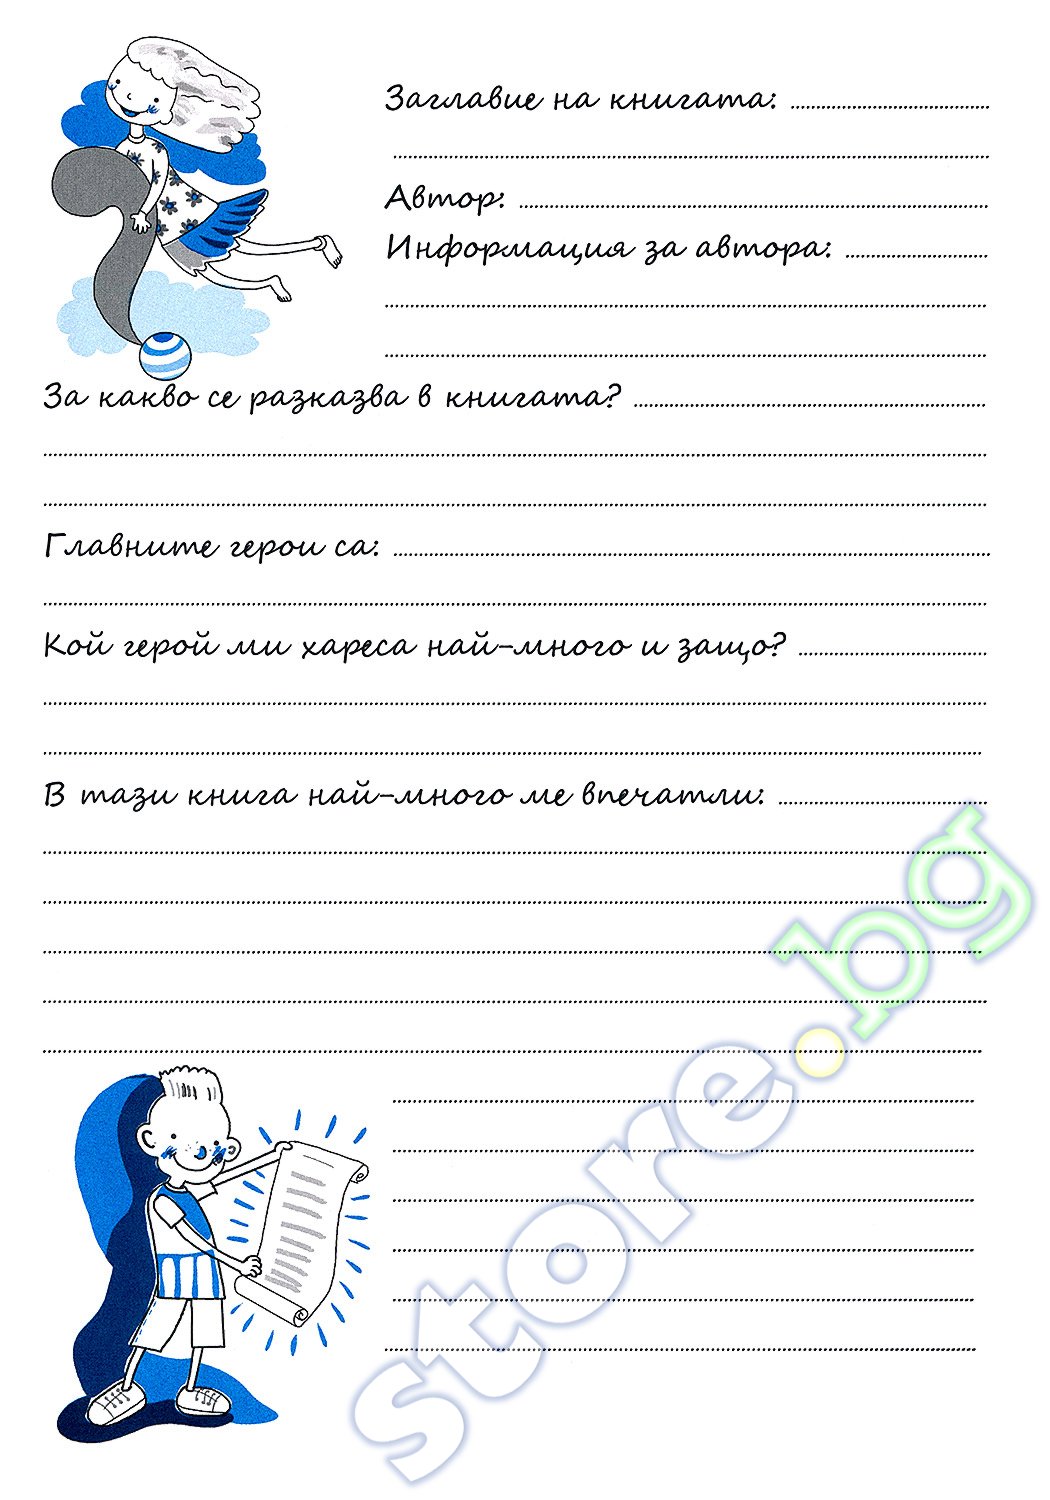 Заглавие на книгата:
Автор:
Информация за автора:
За какво се разказва в книгата?
Главните герои са:
Кой герой ми хареса най-много и защо?
В тази книга най-много ме впечатли:
store.bg